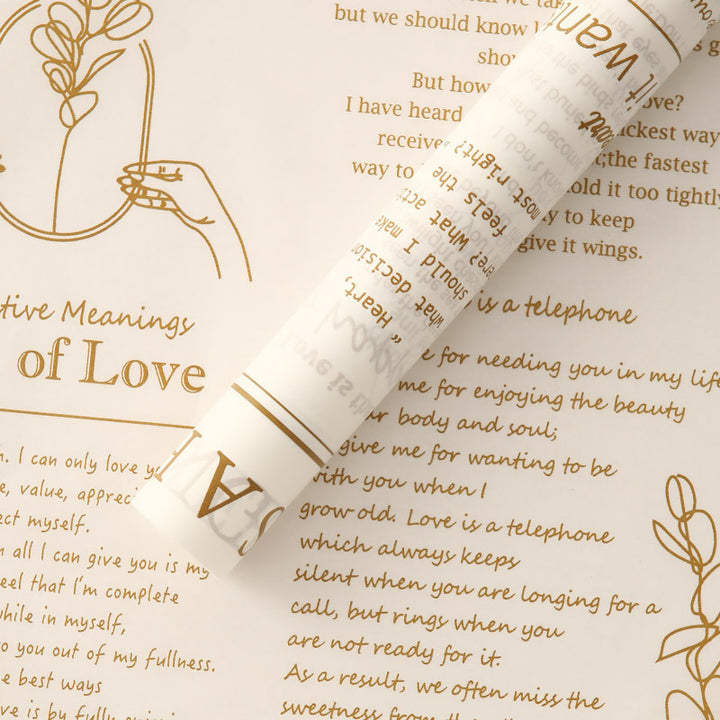 when we ta
but we should know l
sho
But how love?
I have heard quickest way
receive t;the fastest
way to hold it too tightly
y to keep
give it wings.
it wan
" Heart,
what decision
should I make
ere? What acti
feels the
most right?
tive Meanings
of Love
n. I can only love y
e, value, apprec
ect myself.
n all I can give you is my
eel that I'm complete
while in myself,
to you out of my fullness.
e best ways
ve is by fully
is a telephone
e for needing you in my life
me for enjoying the beauty
r body and soul;
give me for wanting to be
with you when I
grow old. Love is a telephone
which always keeps
silent when you are longing for a
call, but rings when you
are not ready for it.
As a result, we often miss the
sweetness from